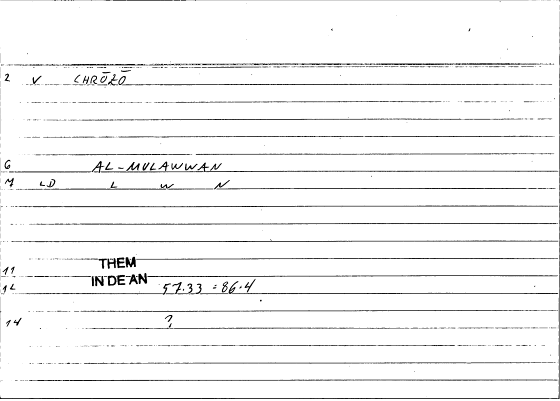 2 V CHRŌZŌ
6 AL-MULAWWAN
M LD L W N
11 THEM
12 IN DE AN 57.33 = 86.4
14 ?